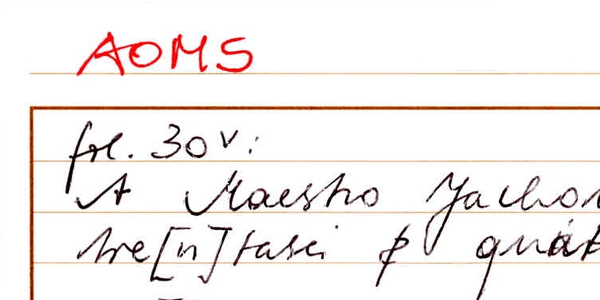 AOMS
fol. 30v:
A Maestro Jachom
tre[n]tasei